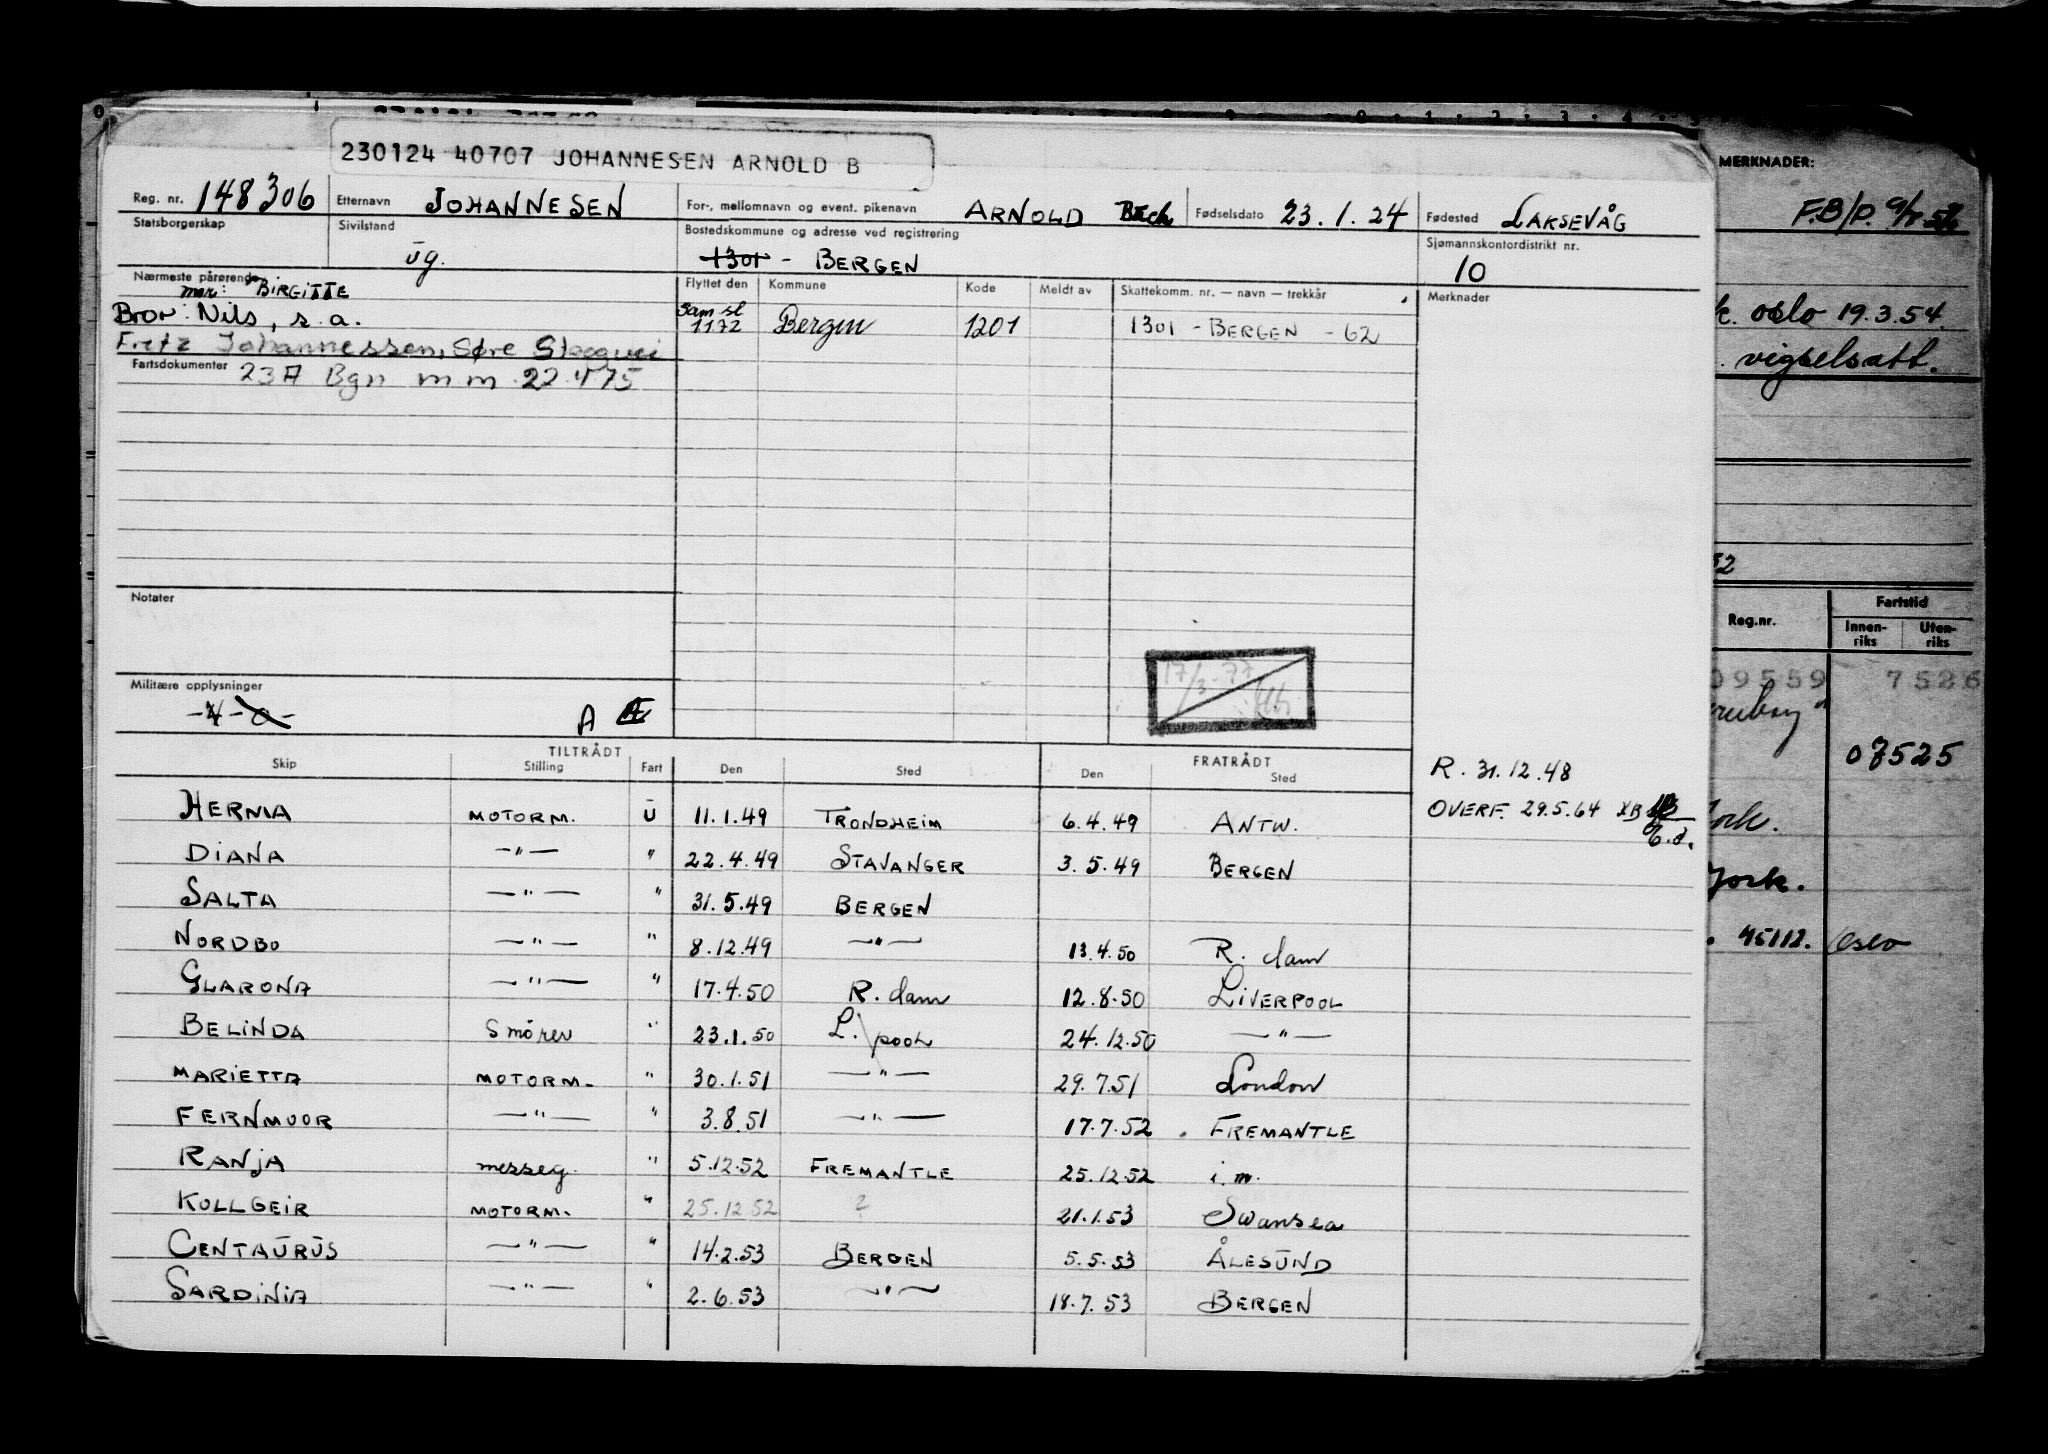 230124 40707 JOHANNESEN ARNOLD B
Reg. nr. 148306 Etternavn JOHANNESEN For-, mellomnavn og event. pikenavn ARNOLD Fødselsdato 23.1.24 Fødested LAKSEVÅG
Statsborgerskap Sivilstand ug. Bostedskommune og adresse ved registrering 1301 - BERGEN Sjømannskontordistrikt nr. 10
Nærmeste pårørende mor: BIRGITTE Flyttet den Kommune Kode Meldt av Skattekomm. nr. — navn — trekkår Merknader
Bror: Nils, s.a. 1172 Bergen 1201 1301 - BERGEN - 62
Fritz Johannessen, Søre
Fartsdokumenter 23A Bgn m m
Notater
17/3-77
Militære opplysninger
A
TILTRÅDT FRATRÅDT
Skip Stilling Fart Den Sted Den Sted
R. 31.12.48
HERNIA MOTORM. U 11.1.49 TRONDHEIM 6.4.49 ANTW. OVERF. 29.5.64
DIANA —"— " 22.4.49 STAVANGER 3.5.49 BERGEN
SALTA —"— " 31.5.49 BERGEN
NORDBO —"— " 8.12.49 —"— 13.4.50 R. dam
GLARONA —"— " 17.4.50 R. dam 12.8.50 LIVERPOOL
BELINDA Smörer " 23.1.50 L.pool 24.12.50 —"—
MARIETTA MOTORM. " 30.1.51 —"— 29.7.51 London
FERNMOOR —"— " 3.8.51 —"— 17.7.52 FREMANTLE
RANJA messeg. " 5.12.52 FREMANTLE 25.12.52 i.m.
KOLLGEIR MOTORM. " 25.12.52 ? 21.1.53 Swansea
CENTAURUS —"— " 14.2.53 BERGEN 5.5.53 ÅLESUND
SARDINIA —"— " 2.6.53 —"— 18.7.53 BERGEN
MERKNADER:
oslo 19.3.54.
vigselsatt.
52
Reg.nr. Fartstid
Innen-riks Uten-riks
09559 7526
07525
York.
York.
45112. Oslo